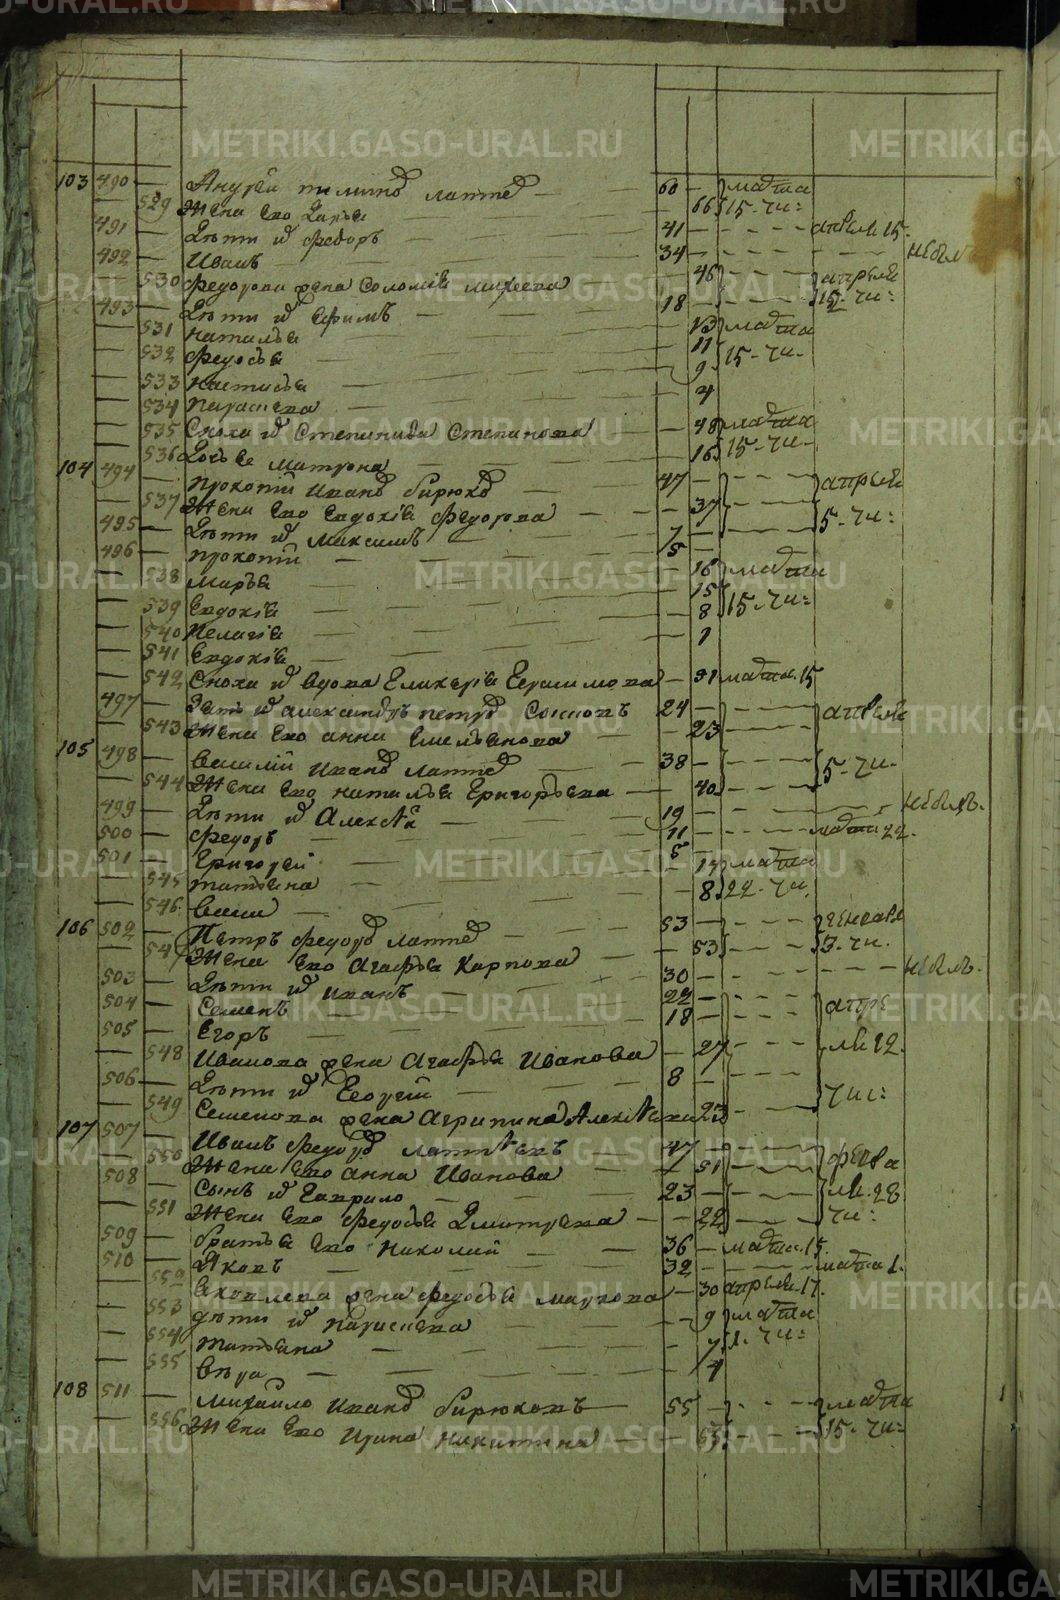 METRIKI.GASO-URAL.RU
103 490 — Андрей пимино лаптев — 60 — марта
— 529 Жена его Дарья — 66 15. чи:
491 — Дѣти их федоръ — 41 — апреля 15.
492 — Иванъ — 34 — небылъ
— 530 федорова жена Соломия михеева — 46 — апреля
493 — Дѣти их Ефимъ — 18 — 15. чи:
— 531 наталья — 13 марта
— 532 федосья — 11 15. чи.
— 533 настасья — 9
— 534 параскева — 4
— 535 Сноха их Степанида Степанова — 48 марта
— 536 Дочь ее матрона — 16 15. чи.
104 494 — прокопий ивано бирюко — 47 — апреля
— 537 Жена его евдокия федорова — 37 —
495 — Дѣти их максимъ — 7 — 5. чи:
496 — прокопий — 5 —
— 538 марья — 16 марта
— 539 евдокия — 15 15. чи:
— 540 пелагия — 8
— 541 евдокия — 1
— 542 Сноха их вдова Гликерия Герасимова — 31 марта. 15
497 — Зять их александръ петро — 24 — апреля
— 543 Жена его анна Емельянова — 23 —
105 498 — василий ивано лаптев — 38 — 5. чи.
— 544 Жена его наталья Григорьева — 40 —
499 — Дѣти их Алексѣй — 19 — небылъ.
500 — федоръ — 11 — марта 22.
501 — Григорей — 5
— 545 татьяна — 14 марта
— 546 васса — 8 22. чи.
106 502 — Петръ федоро лаптев — 53 — генваря
— 547 Жена его Агафья Карпова — 53 — 3. чи.
503 — Дѣти их иванъ — 30 — небылъ.
504 — Семенъ — 22 — апре
505 — Егоръ — 18 —
— 548 Иванова жена Агафья Иванова — 27 — ля 12.
506 — Дѣти их Георгий — 8 —
— 549 Семенова жена Агрипина Алексѣева 23 — чи:
107 507 — Иванъ федоро лаптевъ — 47 —
— 550 Жена его анна Иванова — 51 — февра
508 — Сынъ их Гаврило — 23 — ля. 28
— 551 Жена его федосья Дмитрева — 22 — чи:
509 — братья его николай — 36 — марта. 15.
510 — Яковъ — 32 — марта 1.
— 552 Яковлева жена федосья маркова — 30 апреля. 17.
— 553 дѣти их параскева — 9 марта
— 554 татьяна — 7 1. чи:
— 555 вѣра — 4
108 511 — михайло ивано бирюковъ — 55 — марта
— 556 Жена его Ирина никитина — 53 — 15. чи: